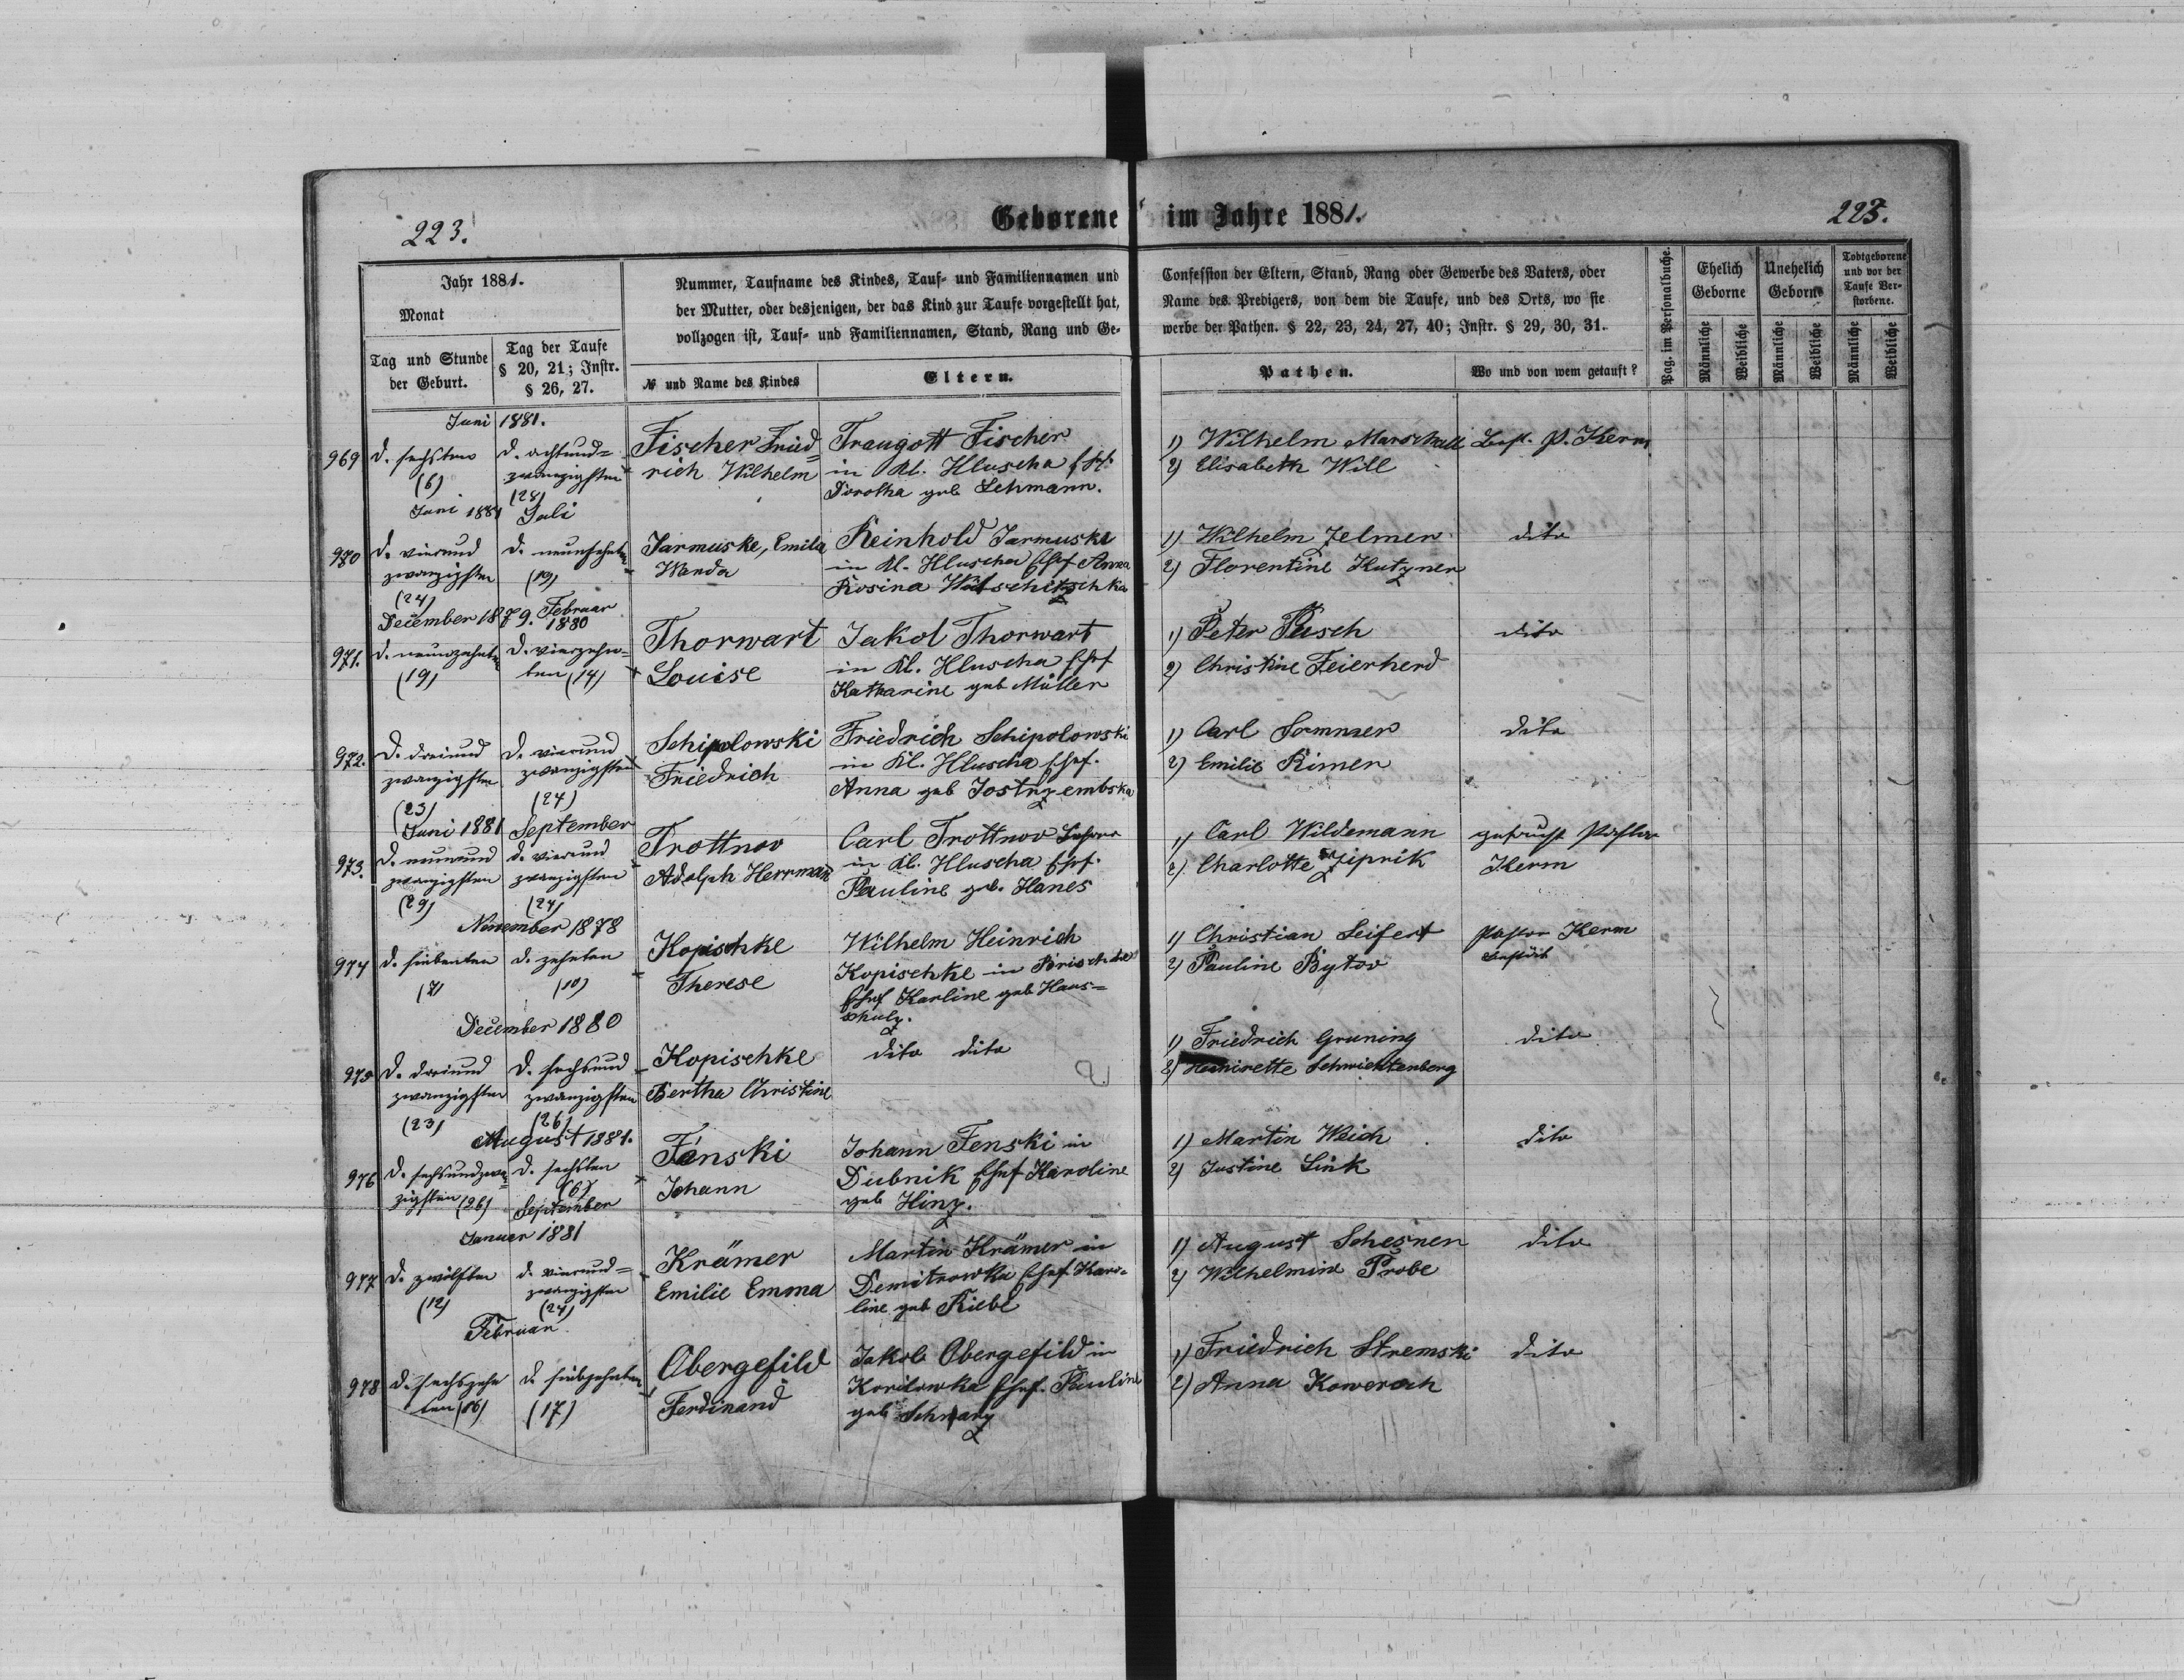 223.
Geborene im Jahre 1881.
223.
Jahr 1881.
Monat
Tag und Stunde der Geburt.
Tag der Taufe § 20, 21; Instr. § 26, 27.
Nummer, Taufname des Kindes, Tauf- und Familiennamen und
der Mutter, oder desjenigen, der das Kind zur Taufe vorgestellt hat,
vollzogen ist, Tauf- und Familiennamen, Stand, Rang und Ge-
№ und Name des Kindes
Eltern.
Confession der Eltern, Stand, Rang oder Gewerbe des Vaters, oder
Name des Predigers, von dem die Taufe, und des Orts, wo sie
werbe der Pathen. § 22, 23, 24, 27, 40; Instr. § 29, 30, 31.
Pathen.
Wo und von wem getauft?
Pag. im Personalbuche.
Ehelich Geborne
Unehelich Geborne
Todtgeborene und vor der Taufe Verstorbene.
Männliche
Weibliche
Männliche
Weibliche
Männliche
Weibliche
Juni 1881.
969 d. sechsten d. achtund= Fischer Fried= Traugott Fischer 1) Wilhelm Marschall P. Kerm
(6) zwanzigsten rich Wilhelm in Kl. Hluscha 2) Elisabeth Will
(28) Dorothea geb Lehmann.
Juni 1881 Juli
970 d. vierund d. neunzehnten Jarmuske, Emila Reinhold Jarmuske 1) Wilhelm Zelmer dito
zwanzigsten (19) Wanda in Kl. Hluscha Ehef Anna 2) Florentine Kutzner
(24) Rosina
December 1879. Februar 1880
971. d. neunzehnten d. vierzehn= Thorwart Jakob Thorwart 1) Peter Pusch dito
(19) ten (14) Louise in Kl. Hluscha Ehef 2) Christine Feierherd
Katharine geb Müller
972. d. dreiund d. vierund Schipolowski Friedrich Schipolowski 1) Carl Sommer dito
zwanzigsten zwanzigsten Friedrich in Kl. Hluscha Ehef. 2) Emilie Rimer
(23) (24) Anna geb Jostrzembska
Juni 1881 September
973. d. neunund d. vierund Trottnov Carl Trottnov 1) Carl Wildemann getauft Pastor
zwanzigsten zwanzigsten Adolph Herrman in Kl. Hluscha Ehef. 2) Charlotte Ziprik Kerm
(29) (24) Pauline geb. Hanes
November 1878
974 d. siebenten d. zehnten Kopischke Wilhelm Heinrich 1) Christian Seifert Pastor Kerm
(7) (10) Therese Kopischke in 2) Pauline Bytov
Ehef Karline geb Haus=
schulz.
December 1880
975 d. dreiund d. sechsund Kopischke dito dito 1) Friedrich Gruning dito
zwanzigsten zwanzigsten Bertha Christine 2) Henirette Schwichtenberg
(23) (26)
August 1881.
976 d. sechsundzwan= d. sechsten Fenski Johann Fenski in 1) Martin Weich dito
zigsten (26) (6) Johann Dubnik Ehef Karoline 2) Justine Link
September geb Hinz.
Januar 1881
977 d. zwölften d. vierund= Krämer Martin Krämer in 1) August Schesner dito
(12) zwanzigsten Emilie Emma Demitrowka Ehef Karo= 2) Wilhelmine Probe
(24) line geb Riebe
Februar
978 d. sechszehn d. siebzehnten Obergefild Jakob Obergefild in 1) Friedrich Stremski dito
ten (16) (17) Ferdinand Korilowka Ehef. Pauline 2) Anna Kowerach
geb Schwarz